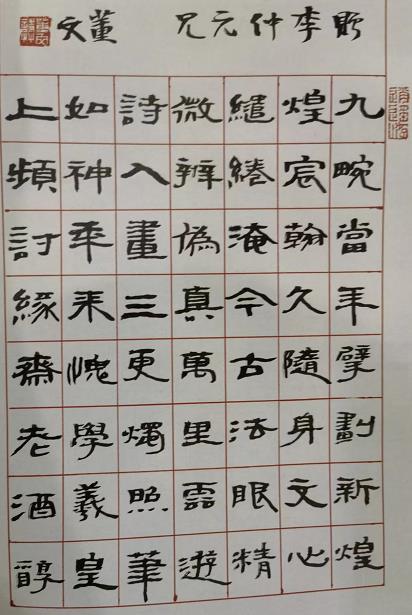 李仲元兄 董文
九畹當年擘劃新煌
煌宸翰久隨身文心
繾綣淹今古法眼精
微辨偽真萬里雲遊
詩入畫三更燭照筆
如神年来愧學羲皇
上頻討緣齋老酒醇